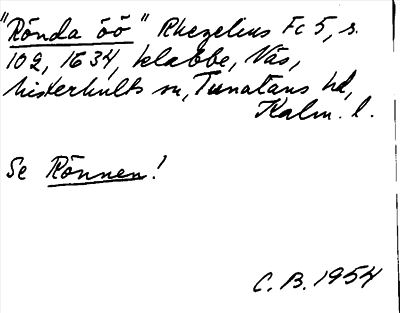 "Rönda öö" Rhezelius Fc 5, s.
102, 1634, klabbe, Näs,
Misterhults sn, Tunaläns hd,
Kalm. l.
Se Rönnen!
C. B. 1954